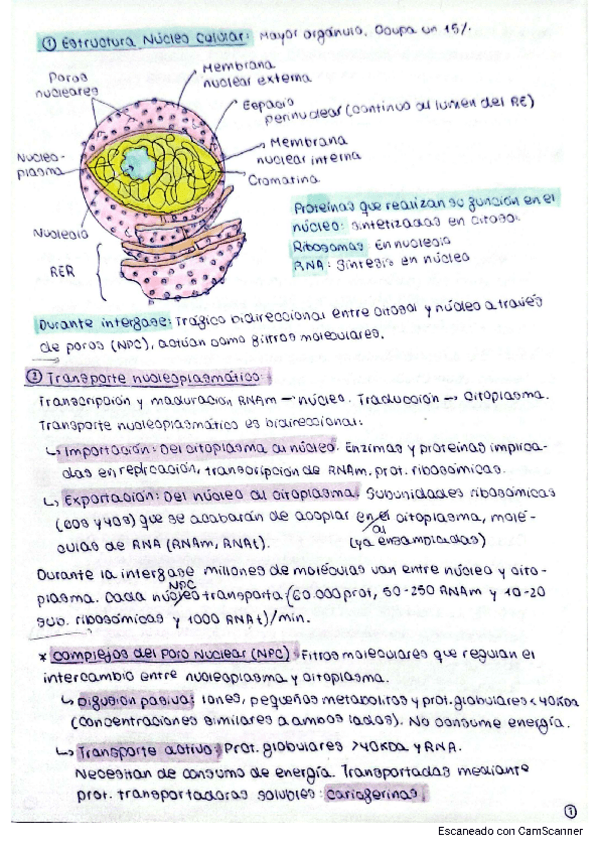 ① Estructura Núcleo Celular: Mayor orgánulo. Ocupa un 15%
Poros nucleares
Membrana nuclear externa
Espacio perinuclear (continuo al lumen del RE)
Membrana nuclear interna
Nucleo-plasma
Cromatina
Proteínas que realizan su función en el
núcleo: sintetizadas en citosol
Nucleolo
Ribosomas: En nucleolo
RER
RNA: Síntesis en núcleo
Durante interfase: Tráfico bidireccional entre citosol y núcleo a través
de poros (NPC), actúan como filtros moleculares.
② Transporte nucleoplasmático:
Transcripción y maduración RNAm → núcleo. Traducción → Citoplasma.
Transporte nucleoplasmático es bidireccional:
↳ Importación: Del citoplasma al núcleo. Enzimas y proteínas implica-
das en replicación, transcripción de RNAm, prot. ribosómicas.
↳ Exportación: Del núcleo al citoplasma. Subunidades ribosómicas
(60s y 40s) que se acabarán de acoplar en el citoplasma, molé-
al
culas de RNA (RNAm, RNAt). (ya ensambladas)
Durante la interfase millones de moléculas van entre núcleo y cito-
NPC
plasma. Cada núcleo transporta (60.000 prot, 50-250 RNAm y 10-20
sub. ribosómicas y 1000 RNAt)/min.
* Complejos del Poro Nuclear (NPC): Filtros moleculares que regulan el
intercambio entre nucleoplasma y citoplasma.
↳ Difusión pasiva: Iones, pequeños metabolitos y prot. globulares < 40KDa
(concentraciones similares a ambos lados). No consume energía.
↳ Transporte activo: Prot. globulares >40KDa y RNA.
Necesitan de consumo de energía. Transportadas mediante
prot. transportadoras solubles: carioferinas
①
Escaneado con CamScanner